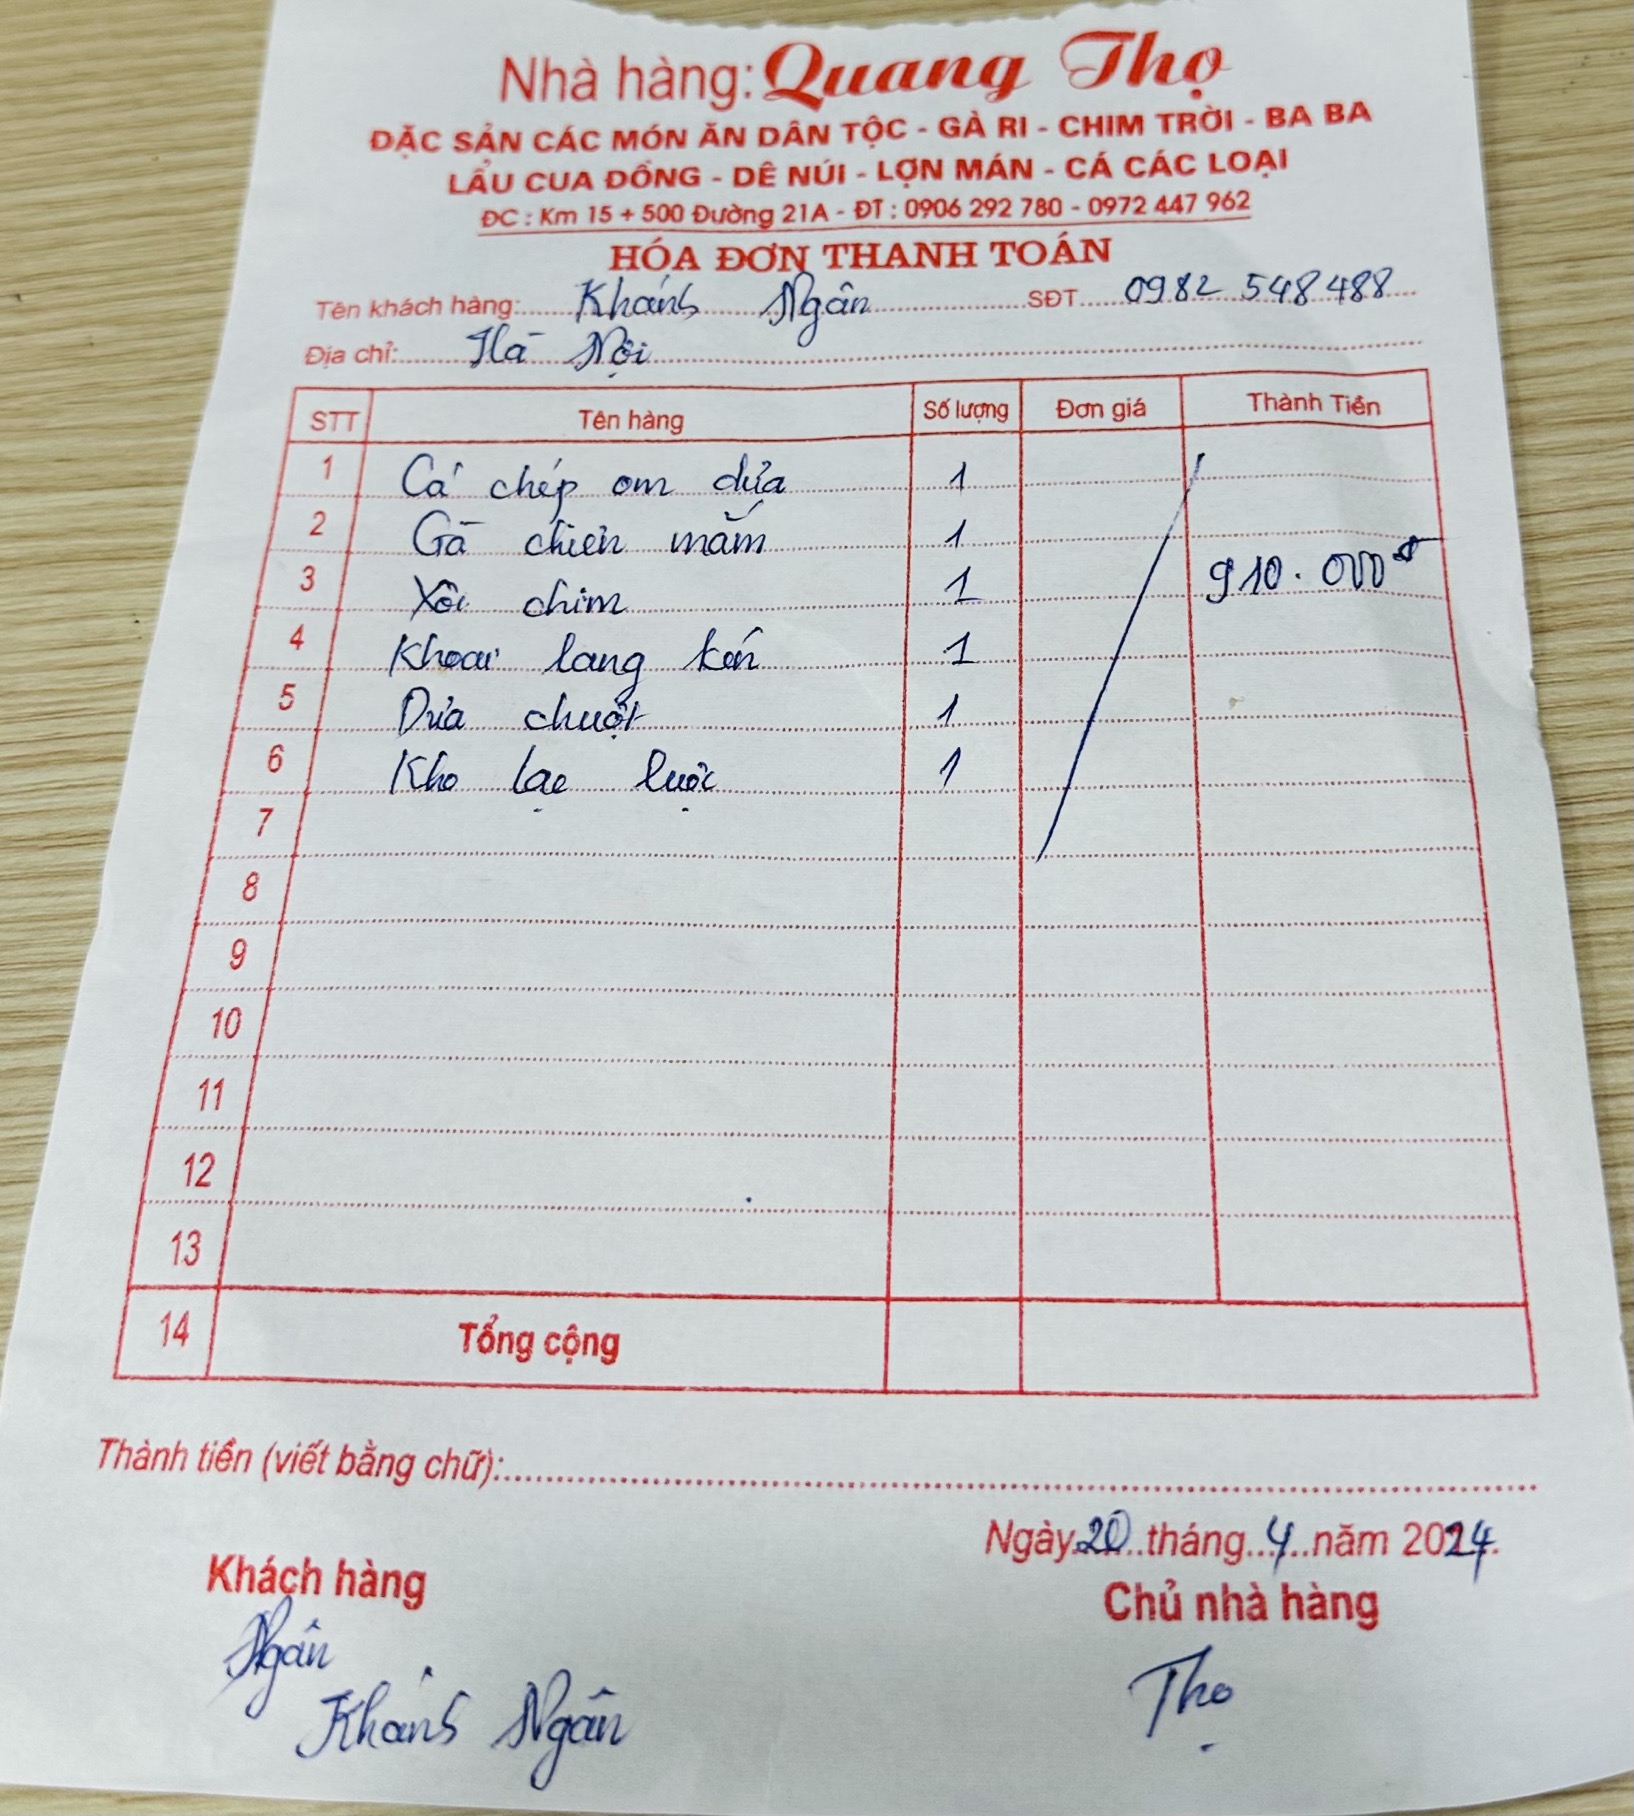 Nhà hàng: Quang Thọ
ĐẶC SẢN CÁC MÓN ĂN DÂN TỘC - GÀ RI - CHIM TRỜI - BA BA
LẨU CUA ĐỒNG - DÊ NÚI - LỢN MÁN - CÁ CÁC LOẠI
ĐC : Km 15 + 500 Đường 21A - ĐT : 0906 292 780 - 0972 447 962
HÓA ĐƠN THANH TOÁN
Tên khách hàng: Khánh Ngân SĐT 0982 548 488
Địa chỉ: Hà Nội
STT Tên hàng Số lượng Đơn giá Thành Tiền
1 Cá chép om dưa 1
2 Gà chiên mắm 1
3 Xôi chim 1 910.000đ
4 Khoai lang kén 1
5 Dưa chuột 1
6 lạc luộc 1
7
8
9
10
11
12
13
14 Tổng cộng
Thành tiền (viết bằng chữ):
Ngày 20 tháng 4 năm 2024
Khách hàng Chủ nhà hàng
Ngân Thọ
Khánh Ngân